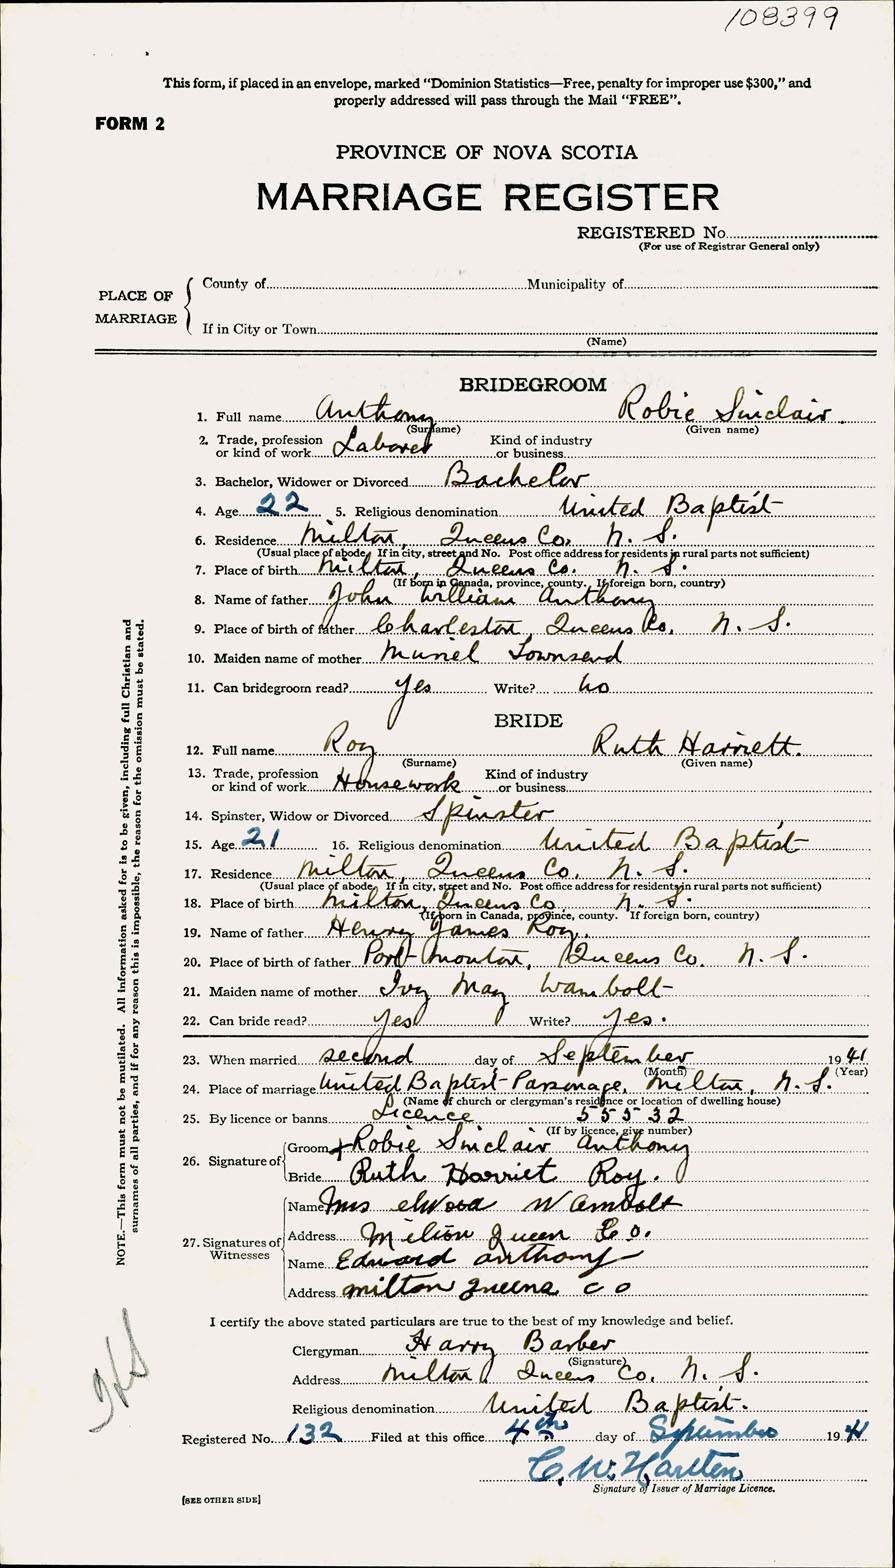 108399
This form, if placed in an envelope, marked “Dominion Statistics—Free, penalty for improper use $300,” and
properly addressed will pass through the Mail “FREE”.
FORM 2
PROVINCE OF NOVA SCOTIA
MARRIAGE REGISTER
REGISTERED No.
(For use of Registrar General only)
PLACE OF MARRIAGE
County of Municipality of
If in City or Town
(Name)
BRIDEGROOM
1. Full name Anthony Robie Sinclair
(Surname) (Given name)
2. Trade, profession or kind of work Laborer Kind of industry or business
3. Bachelor, Widower or Divorced Bachelor
4. Age 22 5. Religious denomination United Baptist
6. Residence Milton, Queens Co. N. S.
(Usual place of abode. If in city, street and No. Post office address for residents in rural parts not sufficient)
7. Place of birth Milton, Queens Co. N. S.
(If born in Canada, province, county. If foreign born, country)
8. Name of father John William Anthony
9. Place of birth of father Charleston, Queens Co. N. S.
10. Maiden name of mother Muriel Townsend
11. Can bridegroom read? Yes Write? No
BRIDE
12. Full name Roy Ruth Harriett.
(Surname) (Given name)
13. Trade, profession or kind of work Housework Kind of industry or business
14. Spinster, Widow or Divorced Spinster
15. Age 21 16. Religious denomination United Baptist
17. Residence Milton, Queens Co. N. S.
(Usual place of abode. If in city, street and No. Post office address for residents in rural parts not sufficient)
18. Place of birth Milton, Queens Co. N. S.
(If born in Canada, province, county. If foreign born, country)
19. Name of father Henry James Roy.
20. Place of birth of father Port-Mouton, Queens Co. N. S.
21. Maiden name of mother Ivy May Wambolt
22. Can bride read? Yes Write? Yes.
23. When married second day of September 1941
(Month) (Year)
24. Place of marriage United Baptist Parsonage, Milton, N. S.
(Name of church or clergyman's residence or location of dwelling house)
25. By licence or banns Licence 55532
(If by licence, give number)
26. Signature of
Groom + Robie Sinclair Anthony
Bride Ruth Harriet Roy.
27. Signatures of Witnesses
Name Mrs elwood Wambolt
Address Milton Queen Co.
Name Edward anthony
Address milton queens co
I certify the above stated particulars are true to the best of my knowledge and belief.
Clergyman Harry Barber
(Signature)
Address Milton, Queens Co. N. S.
Religious denomination United Baptist.
Registered No. 132 Filed at this office 4th day of September 1941
C. W. Harlten
Signature of Issuer of Marriage Licence.
[SEE OTHER SIDE]
NOTE.—This form must not be mutilated. All information asked for is to be given, including full Christian and
surnames of all parties, and if for any reason this is impossible, the reason for the omission must be stated.